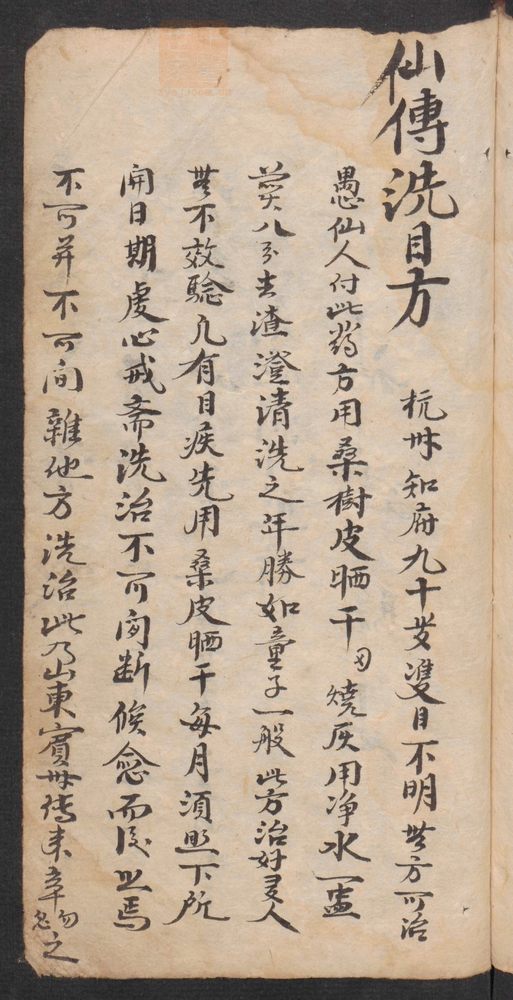 仙傳洗目方
杭州知府九十岁雙目不明無方可治
愚仙人付此药方用桑樹皮晒干燒灰用净水一盅
煎八分去渣澄清洗之年勝如童子一般此方治好多人
無不效驗凡有目疾先用桑皮晒干每月須照下所
開日期虔心戒斋洗治不可间断候愈而後止焉
不可并不可间雜他方洗治此乃山東賓州傳来幸勿忽之